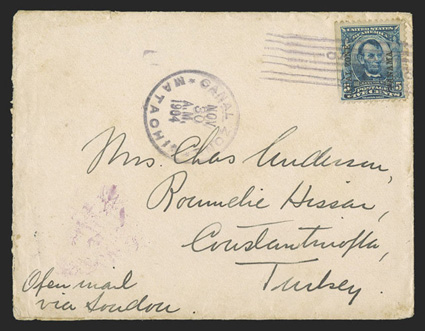 UNITED STATES
CANAL ZONE
PANAMA
5
5
POSTAGE
CANAL ZONE
NOV
30
A.M.
1904
MATACHIN
Mrs. Chas Anderson,
Roumelie Hissar,
Constantinople,
Turkey.
Open mail
via London.